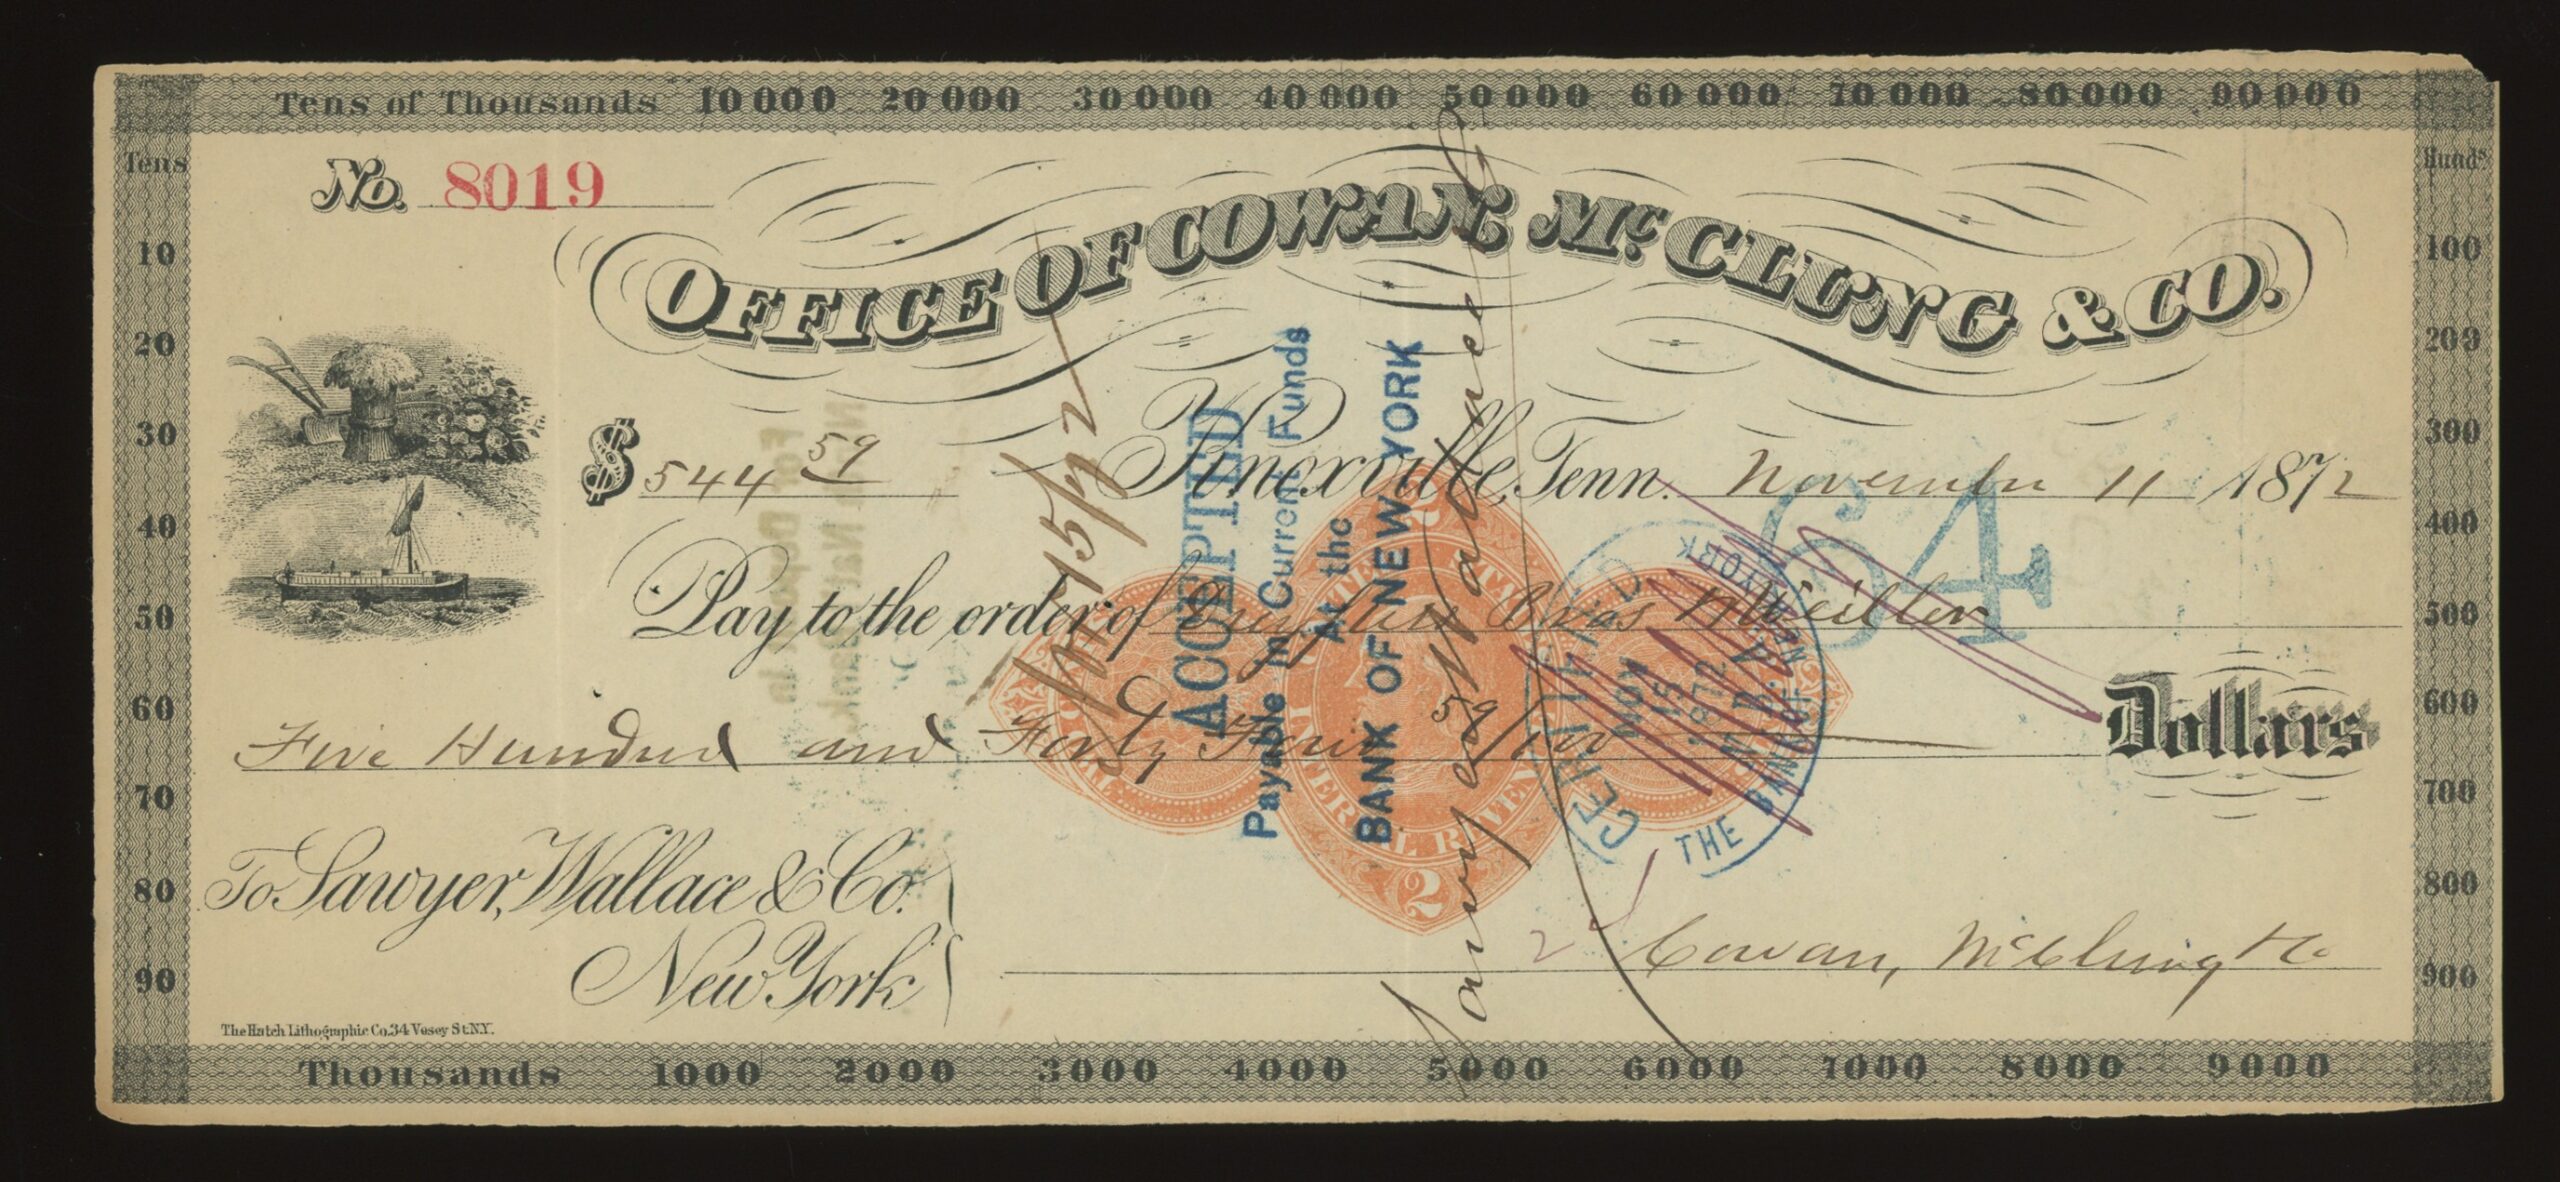 Tens of Thousands 10000 20000 30000 40000 50000 60000 70000 80000 90000
Tens
10
20
30
40
50
60
70
80
90
Hunds
100
200
300
400
500
600
700
800
900
No. 8019
OFFICE OF COWAN, McCLUNG & CO.
$ 544 59 Knoxville, Tenn. November 11 1872
64
Pay to the order of Bros
Five Hundred and Forty Four 59/100 Dollars
To Sawyer, Wallace & Co.
New York
Cowan, McClung & Co
The Hatch Lithographic Co. 34 Vesey St. N.Y.
Thousands 1000 2000 3000 4000 5000 6000 7000 8000 9000
ACCEPTED
Payable in Current Funds
At the
BANK OF NEW YORK
Sawyer Wallace & Co
15/72
CERTIFIED
NOV
15
1872
THE BANK OF NEW YORK
N.B.A.
UNITED STATES
INTERNAL REVENUE
2
2